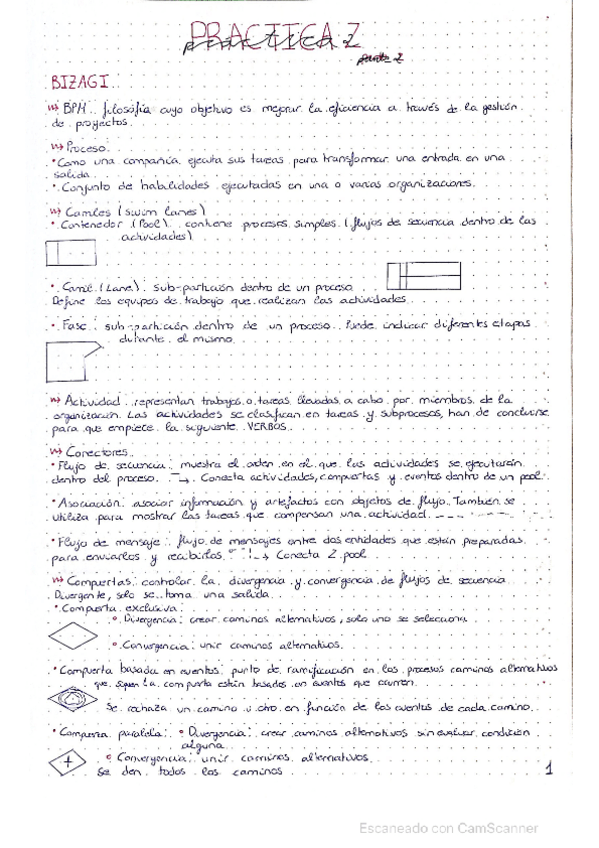 PRACTICA 2
parte 2
BIZAGI
BPM: filosofía cuyo objetivo es mejorar la eficiencia a través de la gestión
de proyectos
Proceso
• Como una compañía ejecuta sus tareas para transformar una entrada en una
salida
• Conjunto de habilidades ejecutadas en una o varias organizaciones.
Carriles (swim lanes)
• Contenedor (Pool): contiene procesos simples (flujos de secuencia dentro de las
actividades)
• Carril (Lane): sub-partición dentro de un proceso
Define los equipos de trabajo que realizan las actividades
• Fase: sub-partición dentro de un proceso. Puede indicar diferentes etapas
durante el mismo.
Actividad: representan trabajos o tareas llevadas a cabo por miembros de la
organización. Las actividades se clasifican en tareas y subprocesos, han de concluirse
para que empiece la siguiente. VERBOS
Conectores
• Flujo de secuencia: muestra el orden en el que las actividades se ejecutarán
dentro del proceso. → Conecta actividades, compuertas y eventos dentro de un pool
• Asociación: asociar información y artefactos con objetos de flujo. También se
utiliza para mostrar las tareas que compensan una actividad
• Flujo de mensaje: flujo de mensajes entre dos entidades que están preparadas
para enviarlos y recibirlos → Conecta 2 pool
Compuertas: controlar la divergencia y convergencia de flujos de secuencia
Divergente, solo se toma una salida
• Compuerta exclusiva:
• Divergencia: crear caminos alternativos, solo uno se selecciona
• Convergencia: unir caminos alternativos.
• Compuerta basada en eventos: punto de ramificación en los procesos caminos alternativos
que siguen la compuerta están basados en eventos que ocurren
Se rechaza un camino u otro en función de los eventos de cada camino
• Compuerta paralela: • Divergencia: crear caminos alternativos sin evaluar condición
alguna
• Convergencia: unir caminos alternativos
Se den todos los caminos
1
Escaneado con CamScanner